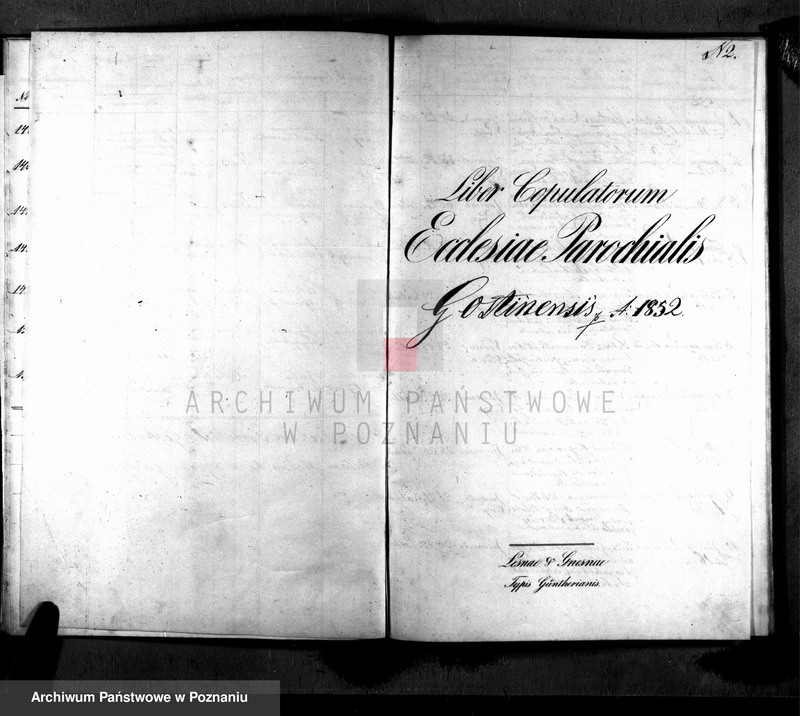 N2.
Liber Copulatorum
Ecclesiae Parochialis
Gostinensis p. A. 1852
ARCHIWUM PAŃSTWOWE
W POZNANIU
Lesnae & Gnesnae
Typis Güntherianis.
Archiwum Państwowe w Poznaniu